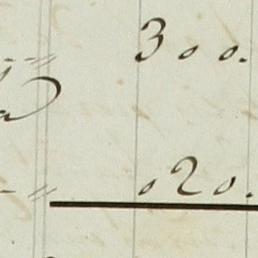 300.
020.